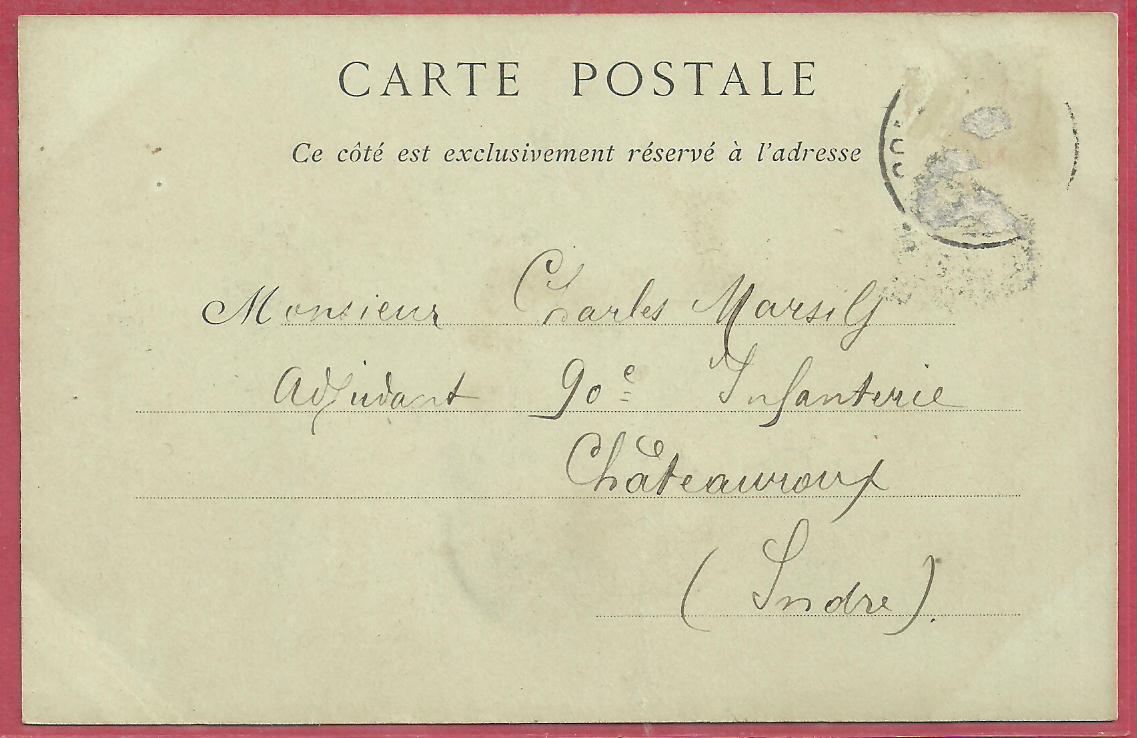 CARTE POSTALE
Ce côté est exclusivement réservé à l'adresse
Monsieur Charles Marsily
Adjudant 90e Infanterie
Châteauroux
(Indre).